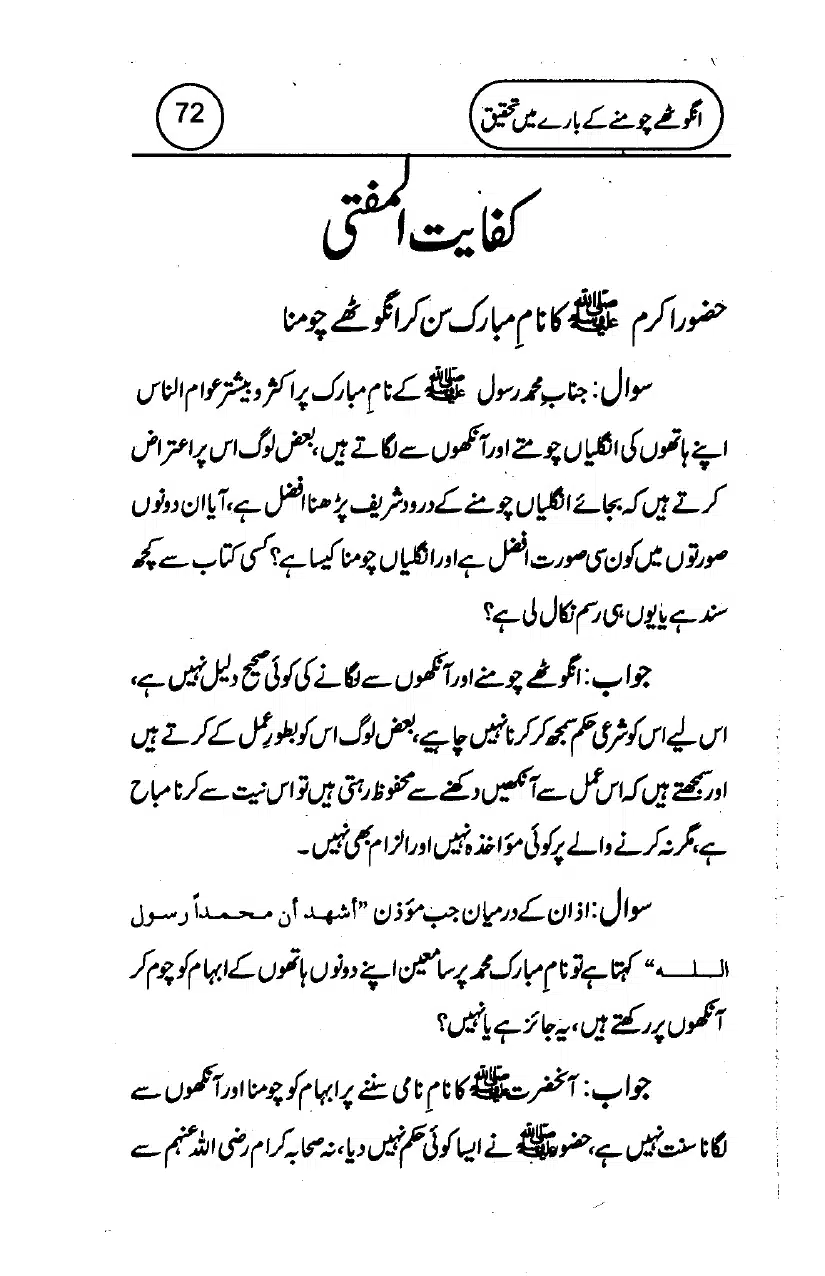 انگوٹھے چومنے کے بارے میں تحقیق
72
کفایت المفتی
حضور اکرم ﷺ کا نامِ مبارک سن کر انگوٹھے چومنا
سوال: جناب محمد رسول ﷺ کے نامِ مبارک پر اکثر و بیشتر عوام الناس
اپنے ہاتھوں کی انگلیاں چومتے اور آنکھوں سے لگاتے ہیں، بعض لوگ اس پر اعتراض
کرتے ہیں کہ بجائے انگلیاں چومنے کے درود شریف پڑھنا افضل ہے، آیا ان دونوں
صورتوں میں کون سی صورت افضل ہے اور انگلیاں چومنا کیسا ہے؟ کسی کتاب سے کچھ
سند ہے یا یوں ہی رسم نکال لی ہے؟
جواب: انگوٹھے چومنے اور آنکھوں سے لگانے کی کوئی صحیح دلیل نہیں ہے،
اس لیے اس کو شرعی حکم سمجھ کر کرنا نہیں چاہیے، بعض لوگ اس کو بطورِ عمل کے کرتے ہیں
اور سمجھتے ہیں کہ اس عمل سے آنکھیں دکھنے سے محفوظ رہتی ہیں تو اس نیت سے کرنا مباح
ہے، مگر نہ کرنے والے پر کوئی مؤاخذہ نہیں اور الزام بھی نہیں۔
سوال: اذان کے درمیان جب مؤذن ”أشهد أن محمداً رسول
اللـــه“ کہتا ہے تو نامِ مبارک محمد پر سامعین اپنے دونوں ہاتھوں کے ابہام کو چوم کر
آنکھوں پر رکھتے ہیں، یہ جائز ہے یا نہیں؟
جواب: آنحضرت ﷺ کا نامِ نامی سننے پر ابہام کو چومنا اور آنکھوں سے
لگانا سنت نہیں ہے، حضور ﷺ نے ایسا کوئی حکم نہیں دیا، نہ صحابہ کرام رضی اللہ عنہم سے